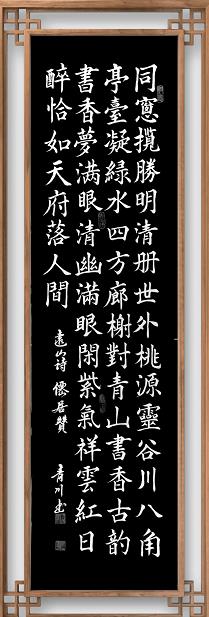 同窓攬勝明清册世外桃源靈谷川八角
亭臺凝緑水四方廊榭對青山書香古韵
書香夢满眼清幽滿眼閑紫氣祥雲紅日
醉恰如天府落人間
遠山詩 儒居贊
青川書